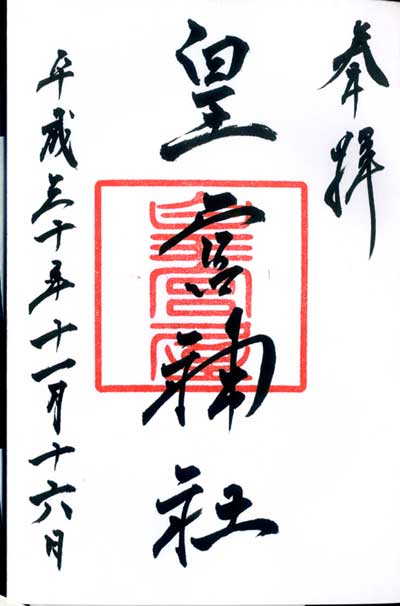 奉拝
皇宮神社
平成三十年十一月十六日